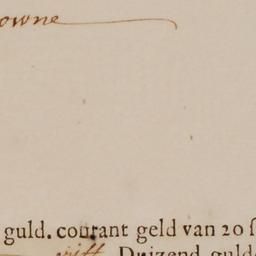 owne
guld. courant geld van 20 ſ
vijff Duizend guld